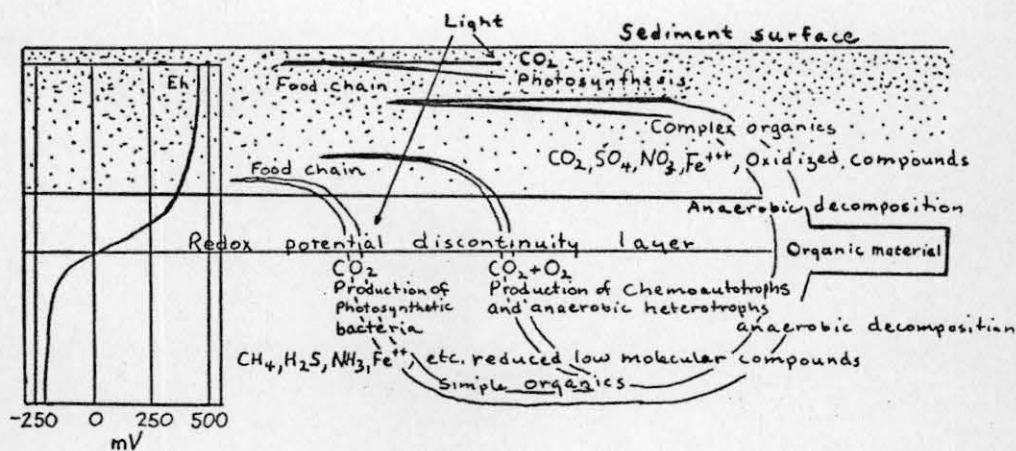 Light
Sediment surface
Eh
CO₂
Photosynthesis
Food chain
Complex organics
CO₂, SO₄, NO₃, Fe⁺⁺⁺, Oxidized compounds
Food chain
Anaerobic decomposition
Redox potential discontinuity layer
Organic material
CO₂
Production of
Photosynthetic
bacteria
CO₂ + O₂
Production of Chemoautotrophs
and anaerobic heterotrophs
anaerobic decomposition
CH₄, H₂S, NH₃, Fe⁺⁺, etc. reduced low molecular compounds
Simple organics
-250 0 250 500
mV